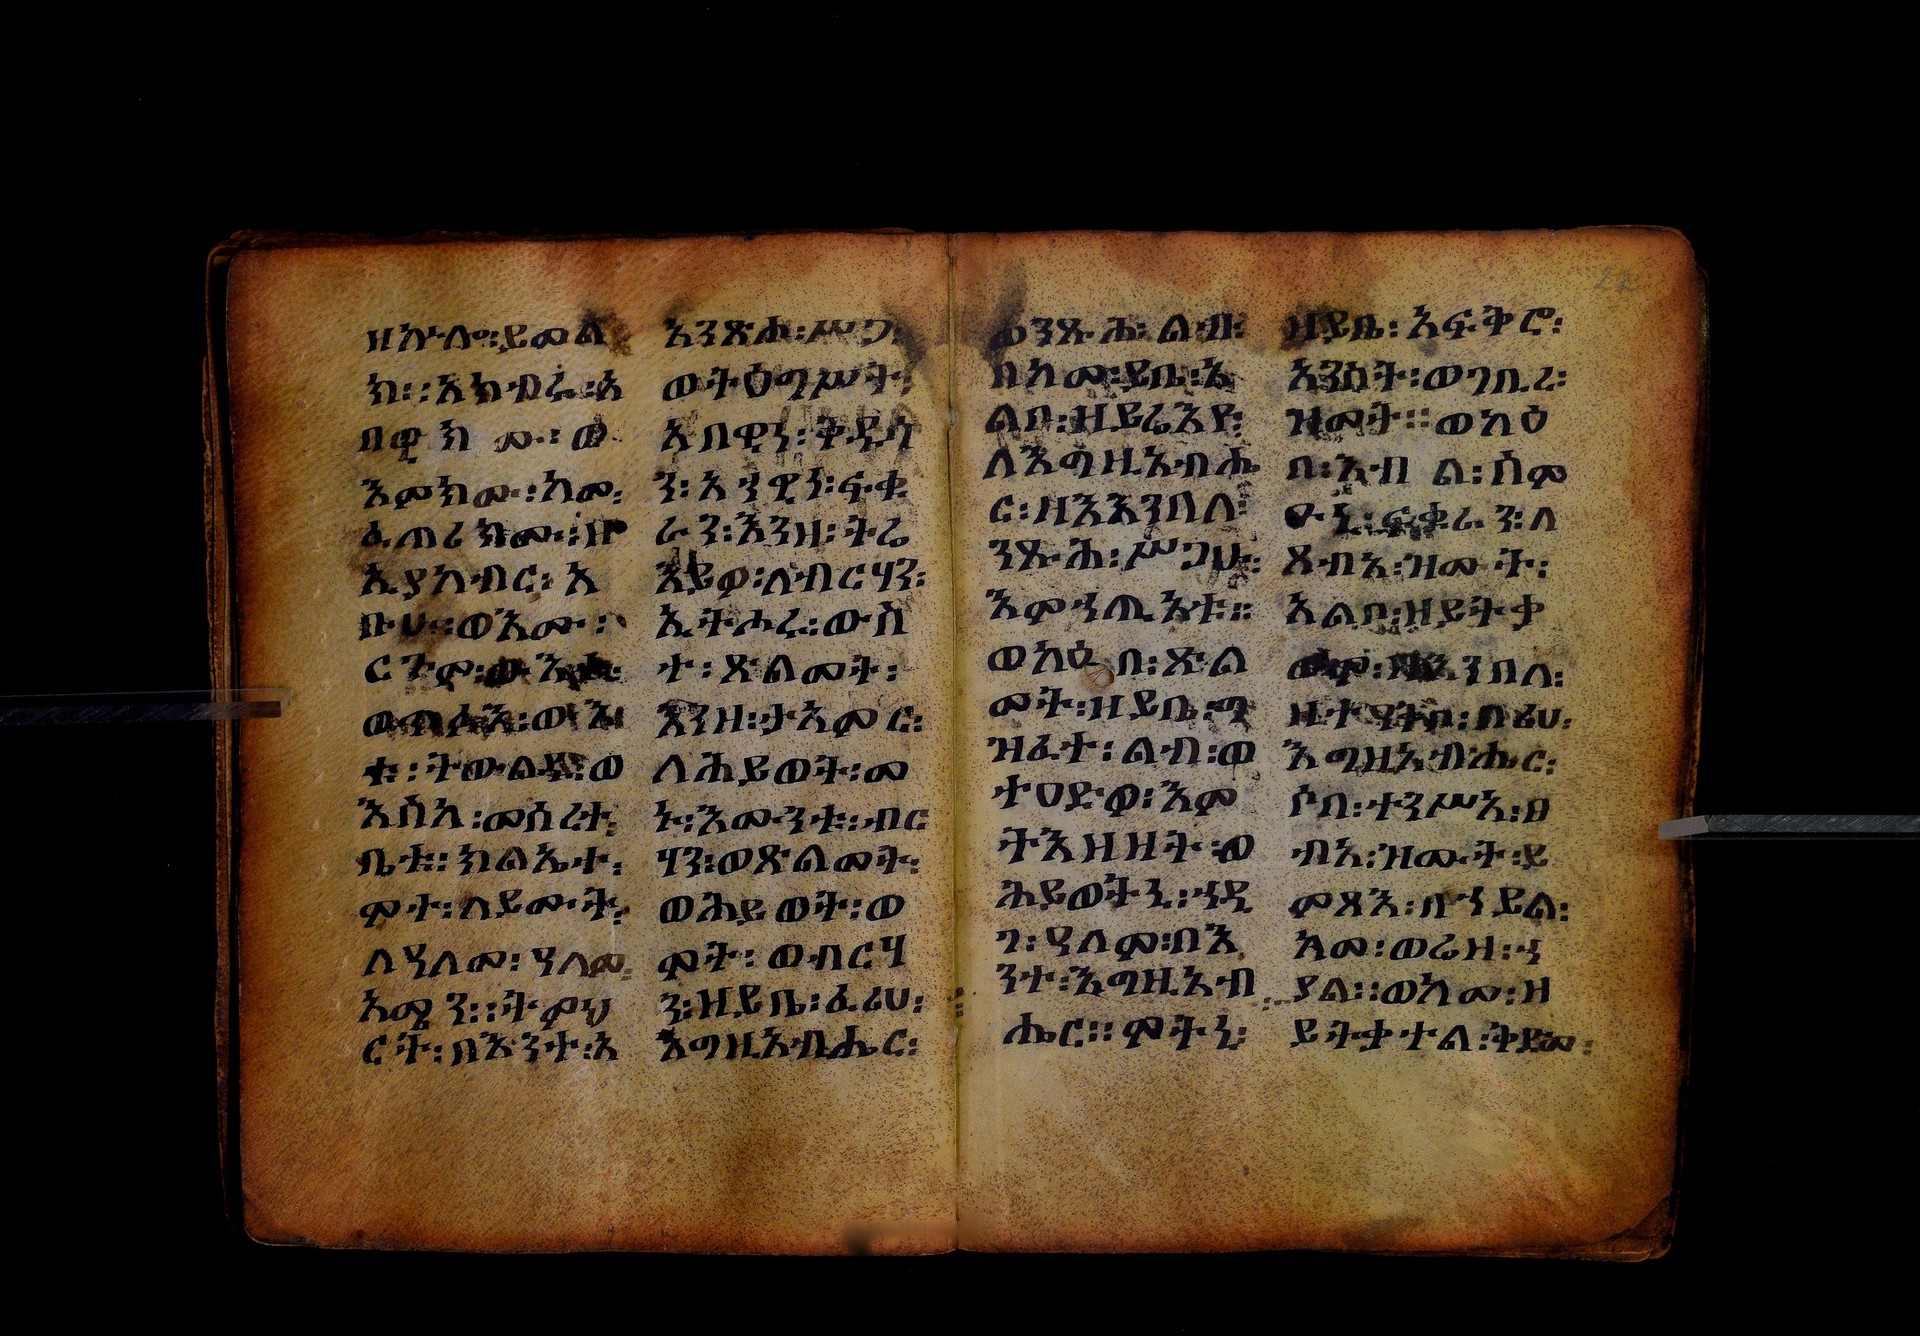 ዘኵሎ፡ይመል
ክ፡፡አክብሩ፡አ
በዊክሙ፡ወ
እምክሙ፡ከመ፡
ፈጣሪክሙ፡ዘ
ኢያከብር፡አ
ቡሁ፡ወእሙ፡
ርጉም፡ውእቱ፡
ወጣፊእ፡ወእ
ቱ፡ትውልዱ፡ወ
እስከ፡መሰረተ፡
ቤቱ፡ክልኤተ፡
ሞተ፡ለይሙት፡
ለዓለመ፡ዓለም፡
አሜን፡፡ትምህ
ርት፡በእንተ፡አ
አንጽሑ፡ሥጋ፡
ወትዕግሥት፡
አበዊነ፡ቅዱሳ
ን፡አኀዊነ፡ፍቁ
ራን፡እንዘ፡ትሬ
እይዎ፡ለብርሃን፡
ኢትሖሩ፡ውስ
ተ፡ጽልመት፡
እንዘ፡ታአምር፡
ለሕይወት፡መ
ኑ፡እሙንቱ፡ብር
ሃን፡ወጽልመት፡
ወሕይወት፡ወ
ሞት፡ወብርሃ
ን፡ዘይቤ፡ፈሪሀ፡
እግዚአብሔር፡
ወንጹሕ፡ልብ፡
በከመ፡ይቤ፡አ
ልቦ፡ዘይሬእዮ፡
ለእግዚአብሔ
ር፡ዘእእንበለ፡
ንጹሕ፡ሥጋሁ፡
እምኀጢአቱ፡፡
ወካዕበ፡ጽል
መት፡ዘይቤ፡ግ
ዝፈተ፡ልብ፡ወ
ተዐድዎ፡እም
ትእዘዘት፡ወ
ሕይወትኒ፡ኀዲ
ግ፡ዓለም፡በእ
ንተ፡እግዚአብ
ሔር፡፡ሞትኒ፡
ዘይቤ፡አፍቅሮ፡
አንስት፡ወገቢረ፡
ዝሙት፡፡ወካዕ
በ፡እብል፡ስም
ዑኒ፡ፍቁራን፡ለ
ጸብአ፡ዝሙት፡
አልቦ፡ዘይትቃ
ወሞ፡ዘእንበለ፡
ዘተሃትቦ፡በፊሀ፡
እግዚአብሔር፡
ሶበ፡ተንሥአ፡ፀ
ብአ፡ዝሙት፡ይ
መጽእ፡በኀይል፡
አመ፡ወሬዘ፡ኀ
ያል፡፡ወከመ፡ዘ
ይትቃተል፡ቅድመ፡